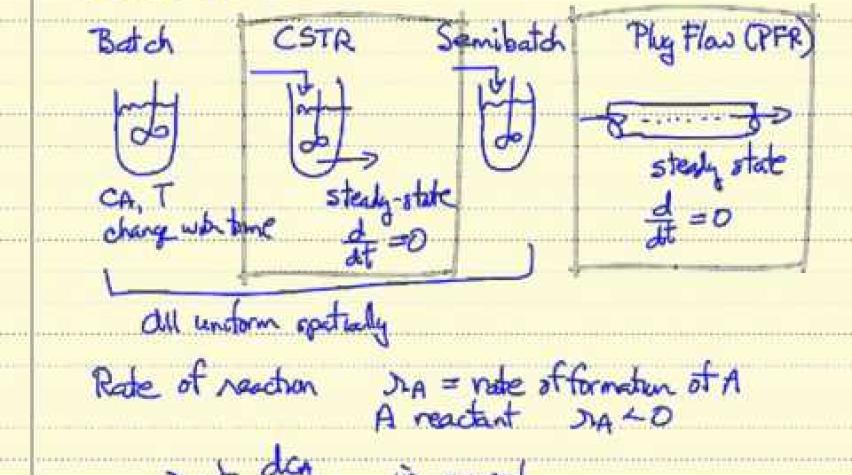 Batch CSTR Semibatch Plug Flow (PFR)
CA, T steady-state steady state
change with time d/dt = 0 d/dt = 0
All uniform spatially
Rate of reaction rA = rate of formation of A
A reactant rA < 0
dCA